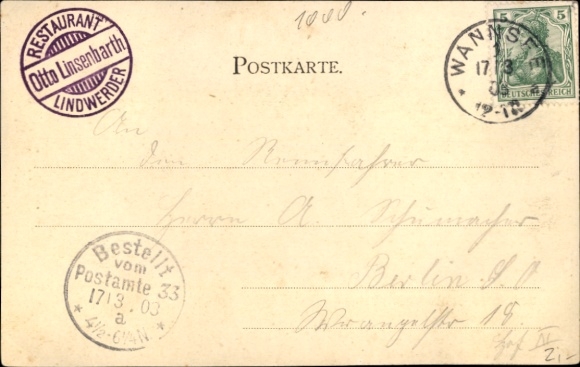 RESTAURANT
Otto Linsenbarth
LINDWERDER
1000.
POSTKARTE.
5 5
WANNSEE
17 3
12-1N
DEUTSCHES REICH
An
den Rennfahrer
Herrn A. Schumacher
Berlin S.O
Wrangelstr 18.
Hof IV
2,-
Bestellt
vom
Postamte 33
17/3 03
a
* 4½-6¼N *